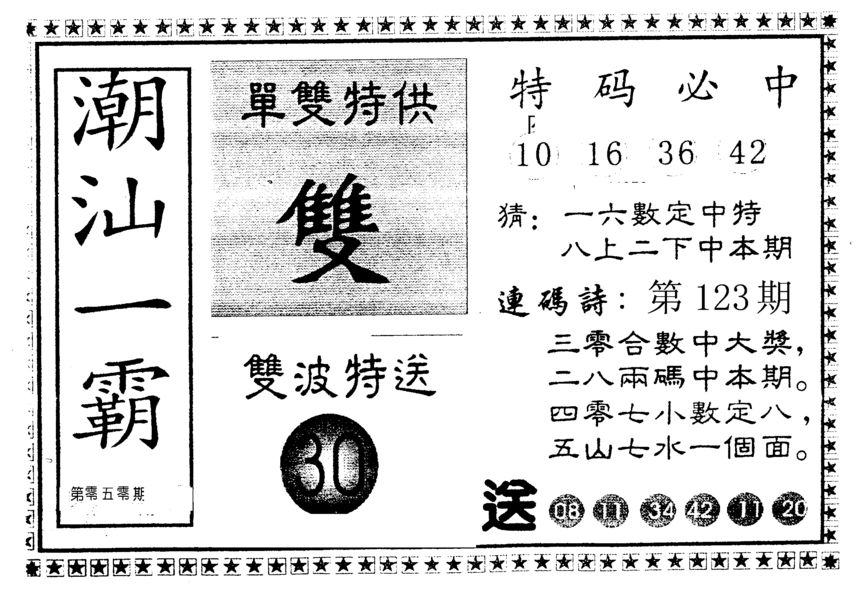 潮汕一霸
第零五零期
單雙特供
雙
雙波特送
30
特码必中
10 16 36 42
猜：一六數定中特
八上二下中本期
連碼詩：第123期
三零合數中大獎，
二八兩碼中本期。
四零七小數定八，
五山七水一個面。
送 08 11 34 42 11 20